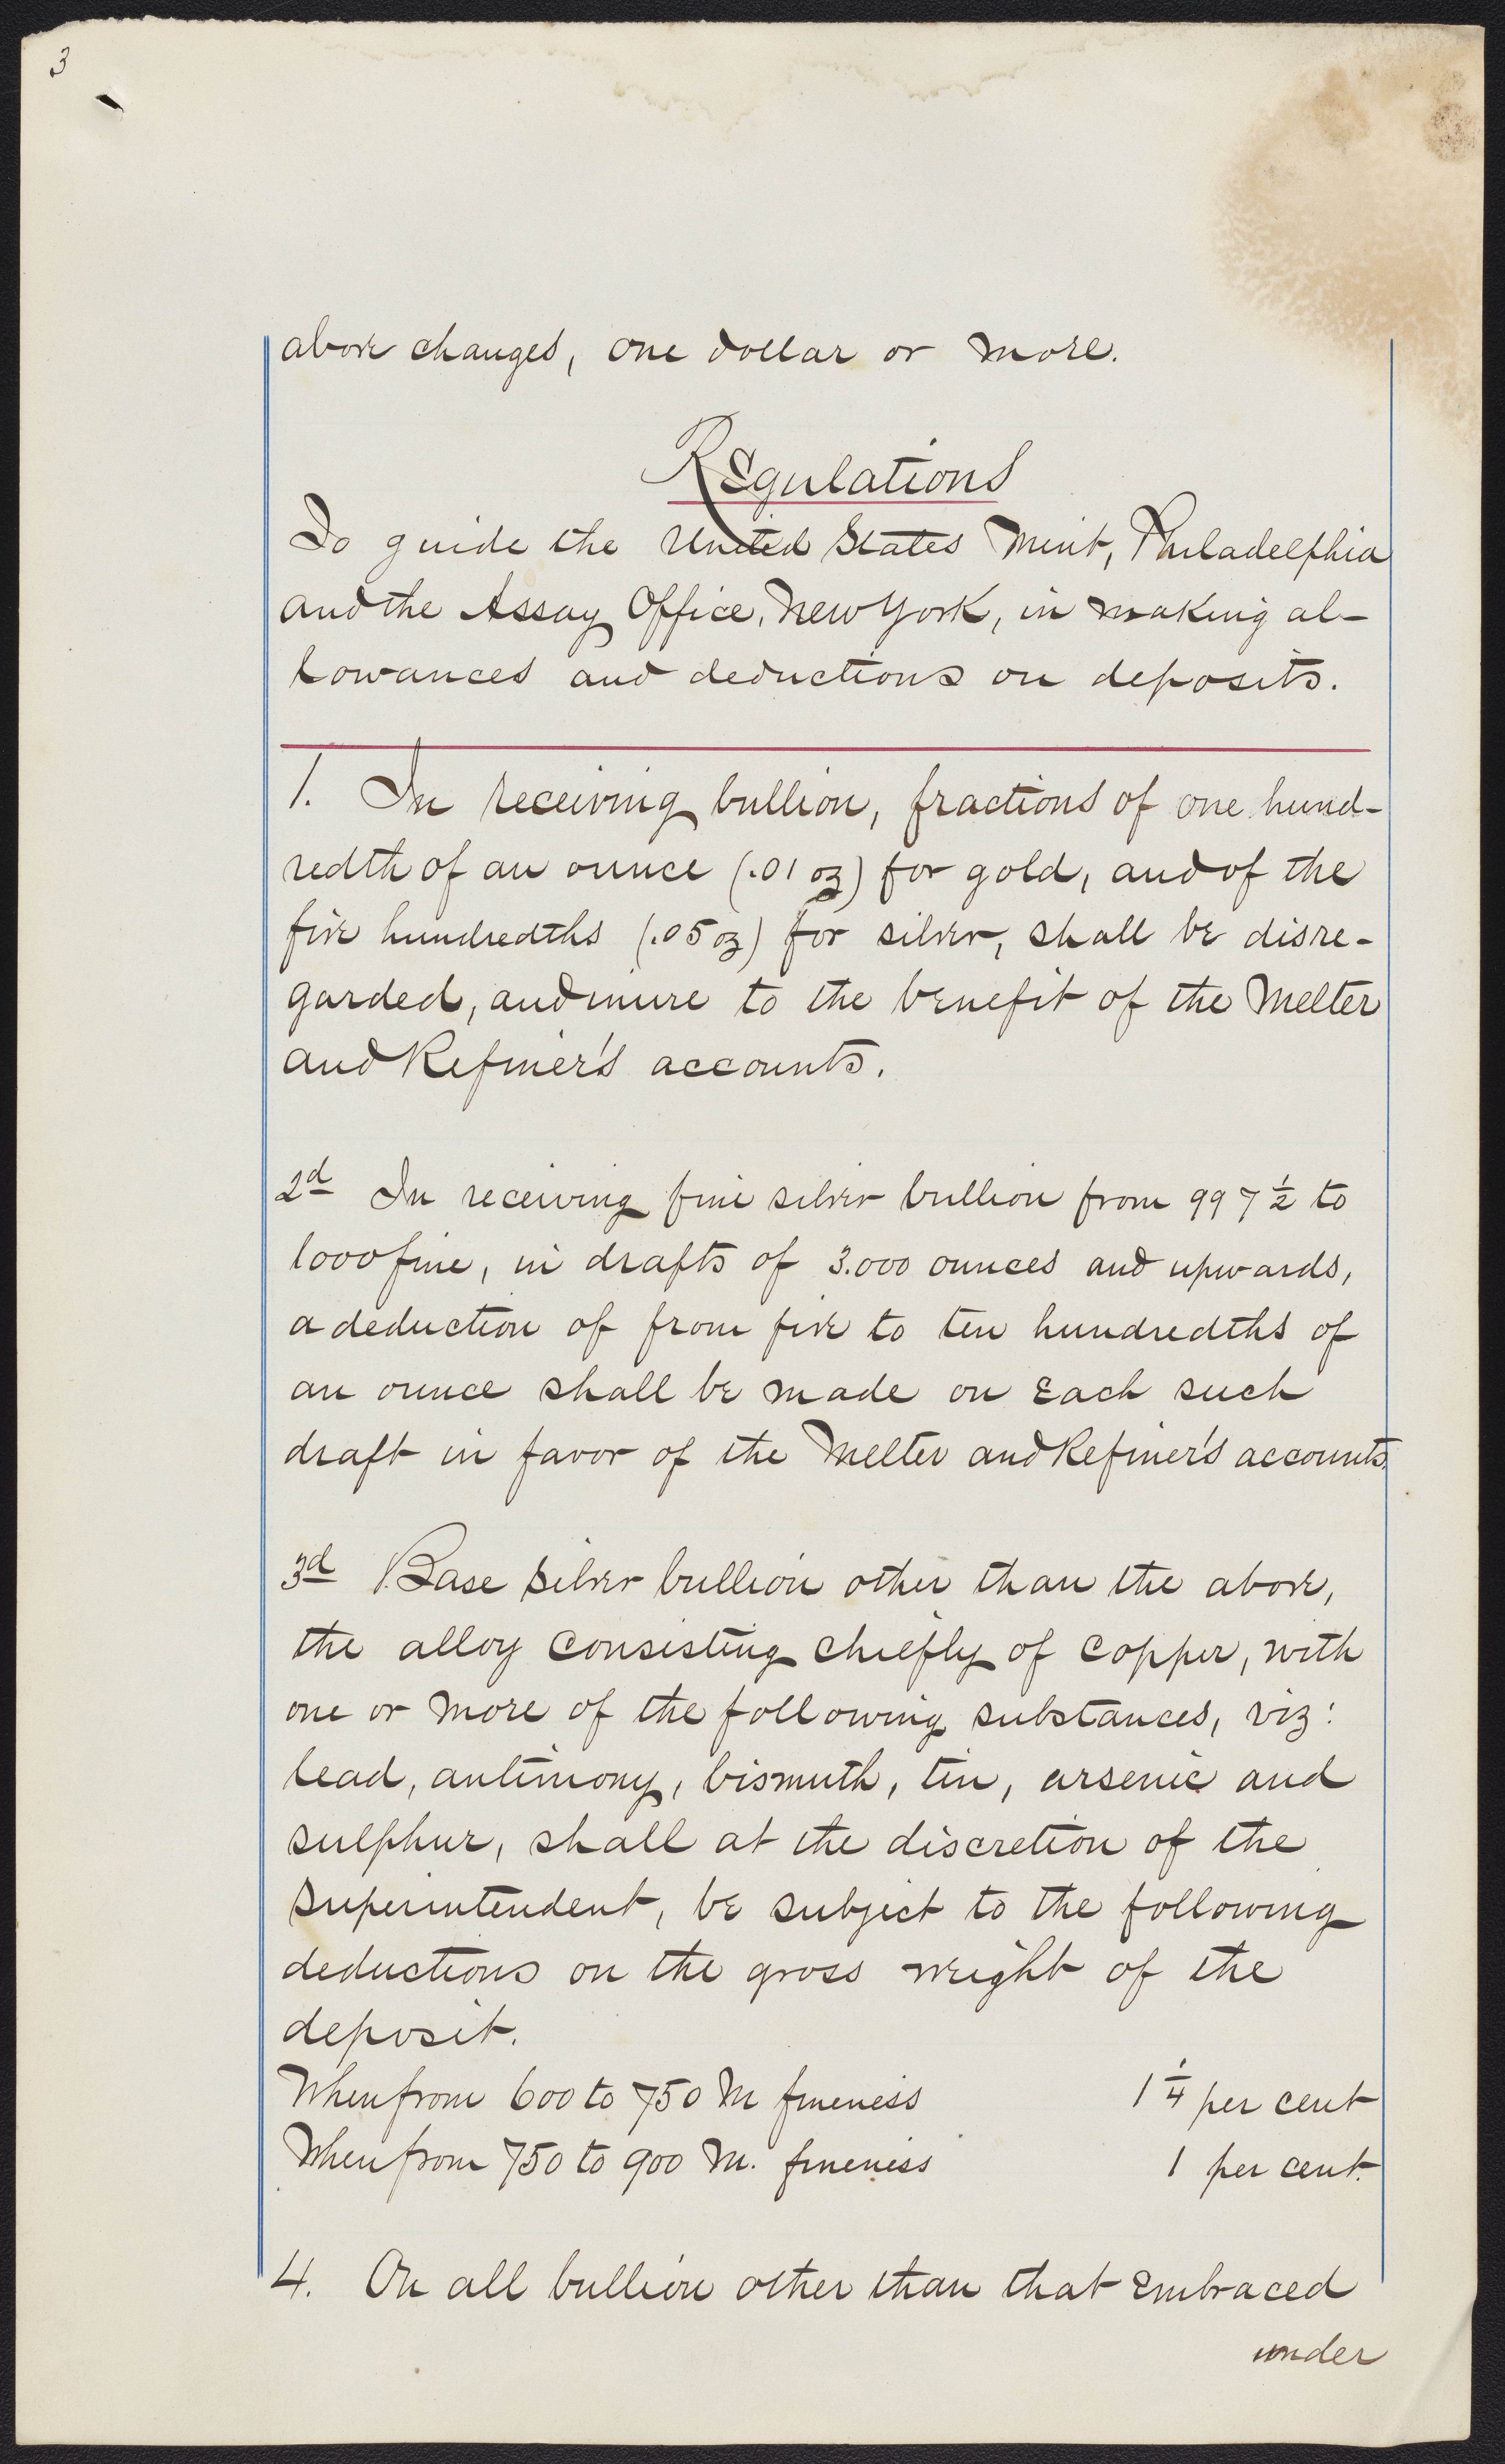 3
above changes, one dollar or more.
Regulations
To guide the United States Mint, Philadelphia
and the Assay Office, New York, in making al-
lowances and deductions on deposits.
1. In receiving bullion, fractions of one hund-
redth of an ounce (.01 oz) for gold, and of the
five hundredths (.05 oz) for silver, shall be disre-
garded, and inure to the benefit of the Melter
and Refiner's accounts.
2d In receiving fine silver bullion from 997 1/2 to
1000 fine, in drafts of 3.000 ounces and upwards,
a deduction of from five to ten hundredths of
an ounce shall be made on each such
draft in favor of the Melter and Refiner's accounts.
3d Base silver bullion other than the above,
the alloy consisting chiefly of copper, with
one or more of the following substances, viz:
lead, antimony, bismuth, tin, arsenic and
sulphur, shall at the discretion of the
Superintendent, be subject to the following
deductions on the gross weight of the
deposit.
When from 600 to 750 M fineness 1 1/4 per cent
When from 750 to 900 M. fineness 1 per cent.
4. On all bullion other than that embraced
under